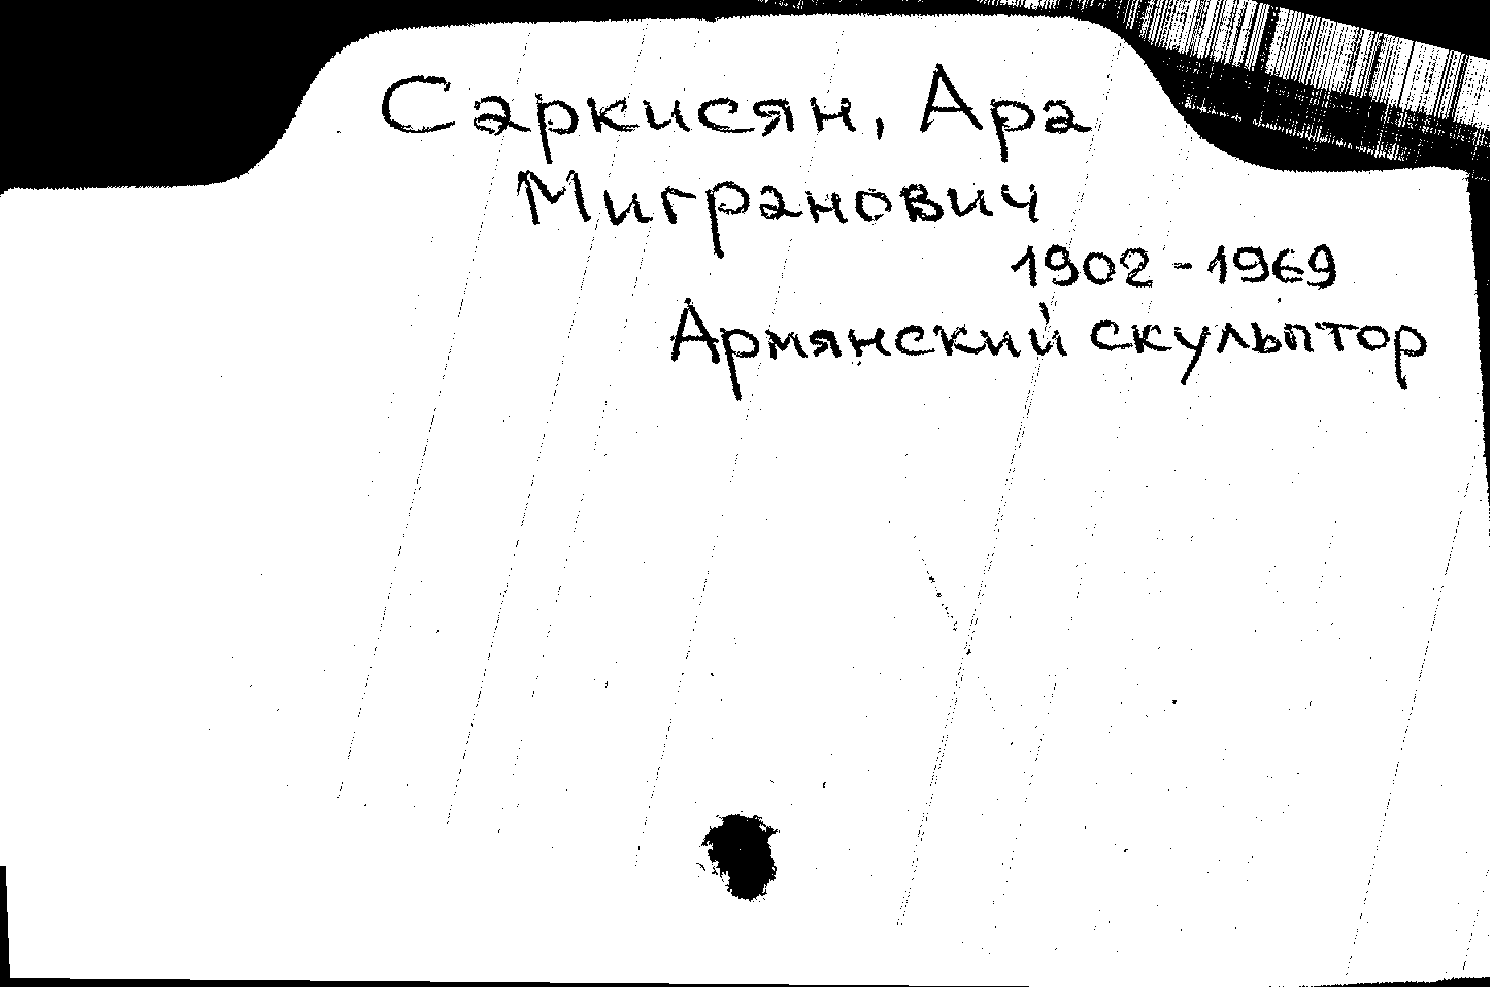 Саркисян, Ара
Мигранович
1902-1969
Армянский скульптор